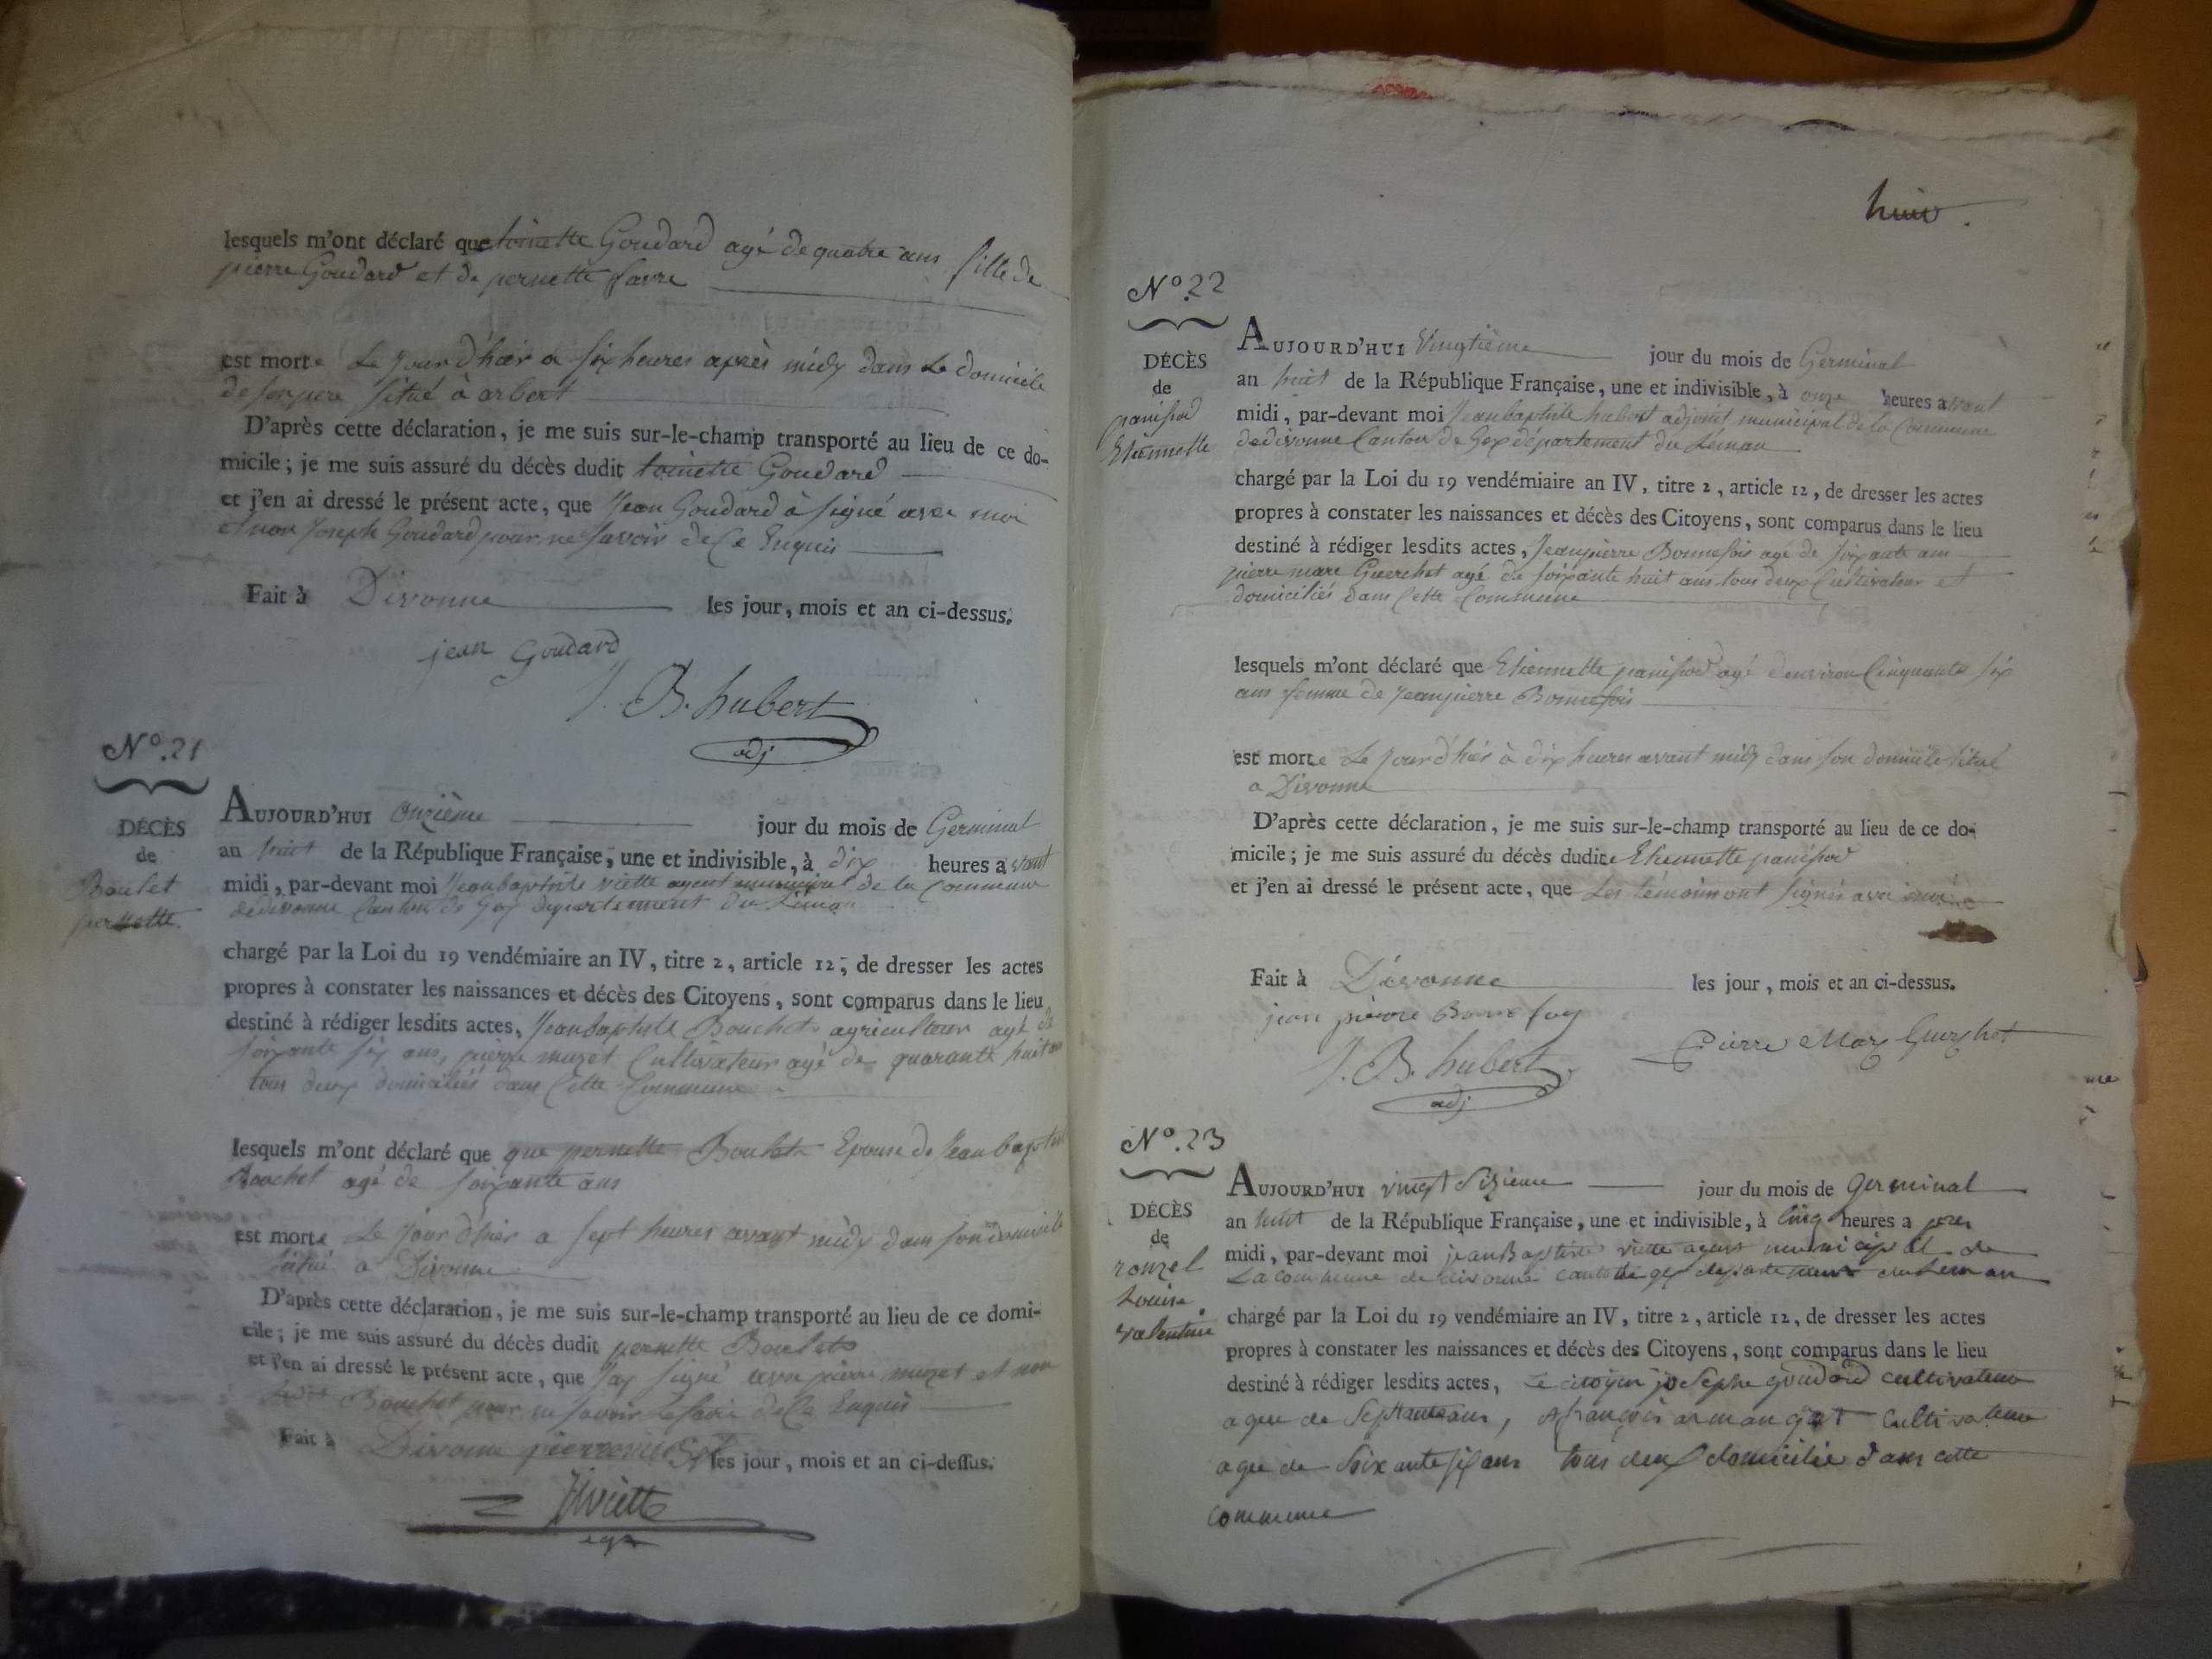 lesquels m'ont déclaré que toinette Goudard agé de quatre ans fille de
pierre Goudard et de pernette favre
est morte Le Jour d'hier a six heures après midy dans Le domicile
de son pere situé à arbert
D'après cette déclaration, je me suis sur-le-champ transporté au lieu de ce do-
micile ; je me suis assuré du décès dudit toinette Goudard
et j'en ai dressé le présent acte, que Jean Goudard à signé avec moi
et non Joseph Goudard pour ne savoir de ce Enquis
Fait à Divonne les jour, mois et an ci-dessus.
jean Goudard
J. B. hubert
adj
N.º 21
DÉCÈS
de
Boulet
pernette.
AUJOURD'HUI onzième jour du mois de Germinal
an huit de la République Française, une et indivisible, à dix heures avant
midi, par-devant moi Jean baptiste viette agent municipal de la Commune
de divonne Canton de Gex departement du Léman
chargé par la Loi du 19 vendémiaire an IV, titre 2, article 12, de dresser les actes
propres à constater les naissances et décès des Citoyens, sont comparus dans le lieu
destiné à rédiger lesdits actes, Jean baptiste Bouchet agriculteur agé de
soixante six ans, pierre muzet Cultivateur agé de quarante huit ans
tous deux domiciliés dans Cette Commune
lesquels m'ont déclaré que que pernette Boulet Epouse de Jean baptiste
Bouchet agé de soixante ans
est morte Le Jour d'hier a sept heures avant midy dans son domicile
situé a Divonne
D'après cette déclaration, je me suis sur-le-champ transporté au lieu de ce domi-
cile ; je me suis assuré du décès dudit pernette Boulet
et j'en ai dressé le présent acte, que J'ay signé avec pierre muzet et non
Bouchet pour ne savoir de Ce Enquis
Fait à Divonne pierre muzet les jour, mois et an ci-dessus.
Viette
agt
huit.
N.º 22
DÉCÈS
de
panissod
Etiennette
AUJOURD'HUI Vingtième jour du mois de Germinal
an huit de la République Française, une et indivisible, à onze heures avant
midi, par-devant moi Jean baptiste hubert adjoint municipal de la Commune
de divonne Canton de Gex département du Léman
chargé par la Loi du 19 vendémiaire an IV, titre 2, article 12, de dresser les actes
propres à constater les naissances et décès des Citoyens, sont comparus dans le lieu
destiné à rédiger lesdits actes, Jeanpierre Bonnefois agé de soixante ans
pierre marc Guerchet agé de soixante huit ans tous deux Cultivateur et
domiciliés dans Cette Commune
lesquels m'ont déclaré que Etiennette panissod agé d'environ Cinquante six
ans femme de Jeanpierre Bonnefois
est morte Le Jour d'hier à dix heures avant midy dans son domicile situé
a Divonne
D'après cette déclaration, je me suis sur-le-champ transporté au lieu de ce do-
micile ; je me suis assuré du décès dudite Etiennette panissod
et j'en ai dressé le présent acte, que Les témoins ont signés avec moi
Fait à Divonne les jour, mois et an ci-dessus.
jean pierre Bonnefoy
Pierre Marc Guerchet
J. B. hubert
adj
N.º 23
DÉCÈS
de
rouzel
Louise
valentine
AUJOURD'HUI vingt Sizieme jour du mois de germinal
an huit de la République Française, une et indivisible, à cinq heures a pres
midi, par-devant moi jean Baptiste viette agent municipal de
La commune de divonne canton de gex departement du Leman
chargé par la Loi du 19 vendémiaire an IV, titre 2, article 12, de dresser les actes
propres à constater les naissances et décès des Citoyens, sont comparus dans le lieu
destiné à rédiger lesdits actes, Le citoyen joSephe goudard cultivateur
agee de Septante ans, françois armand cultivateur
agee de Soixante six ans tous deux domicilie dans cette
commune